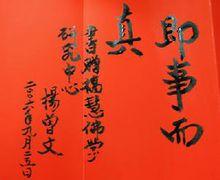 即事而
真
赠福慧佛学
研究中心
楊曾文
二〇〇六年九月二五日